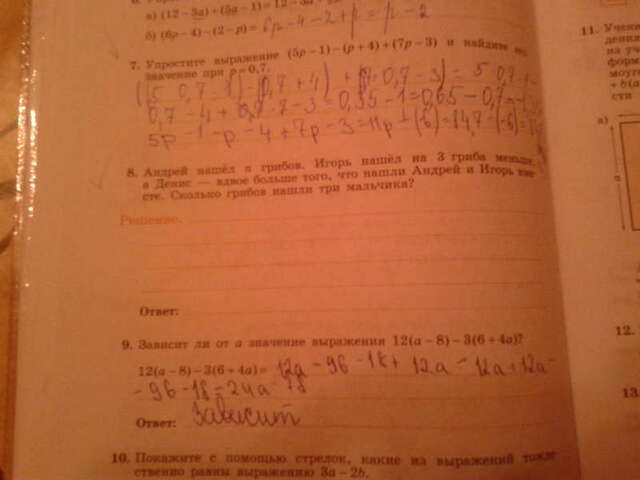 а) (12−3a)+(5a−1)=12−3a
б) (6p−4)−(2−p)= 6p−4−2+p = p−2
7. Упростите выражение (5p−1)−(p+4)+(7p−3) и найдите
значение при p=0,7.
0,7−4+ 7−3=0,35−1=0,65−0,7
5p −1−p−4+7p−3=11p−(6)=14,7−(−6)=
8. Андрей нашёл n грибов. Игорь нашёл на 3 гриба меньше,
а Денис — вдвое больше того, что нашли Андрей и Игорь вме-
сте. Сколько грибов нашли три мальчика?
Решение.
Ответ:
9. Зависит ли от a значение выражения 12(a−8)−3(6+4a)?
12(a−8)−3(6+4a)= 12a−96−18+12a= 12a+12a−
−96−18=24a
Ответ: Зависит
10. Покажите с помощью стрелок, какие из выражений тожде-
ственно равны выражению 3a−2b.
11. Учени
дения
на уч
форм
моуг
+в(a
сти
а)
a
12.
13